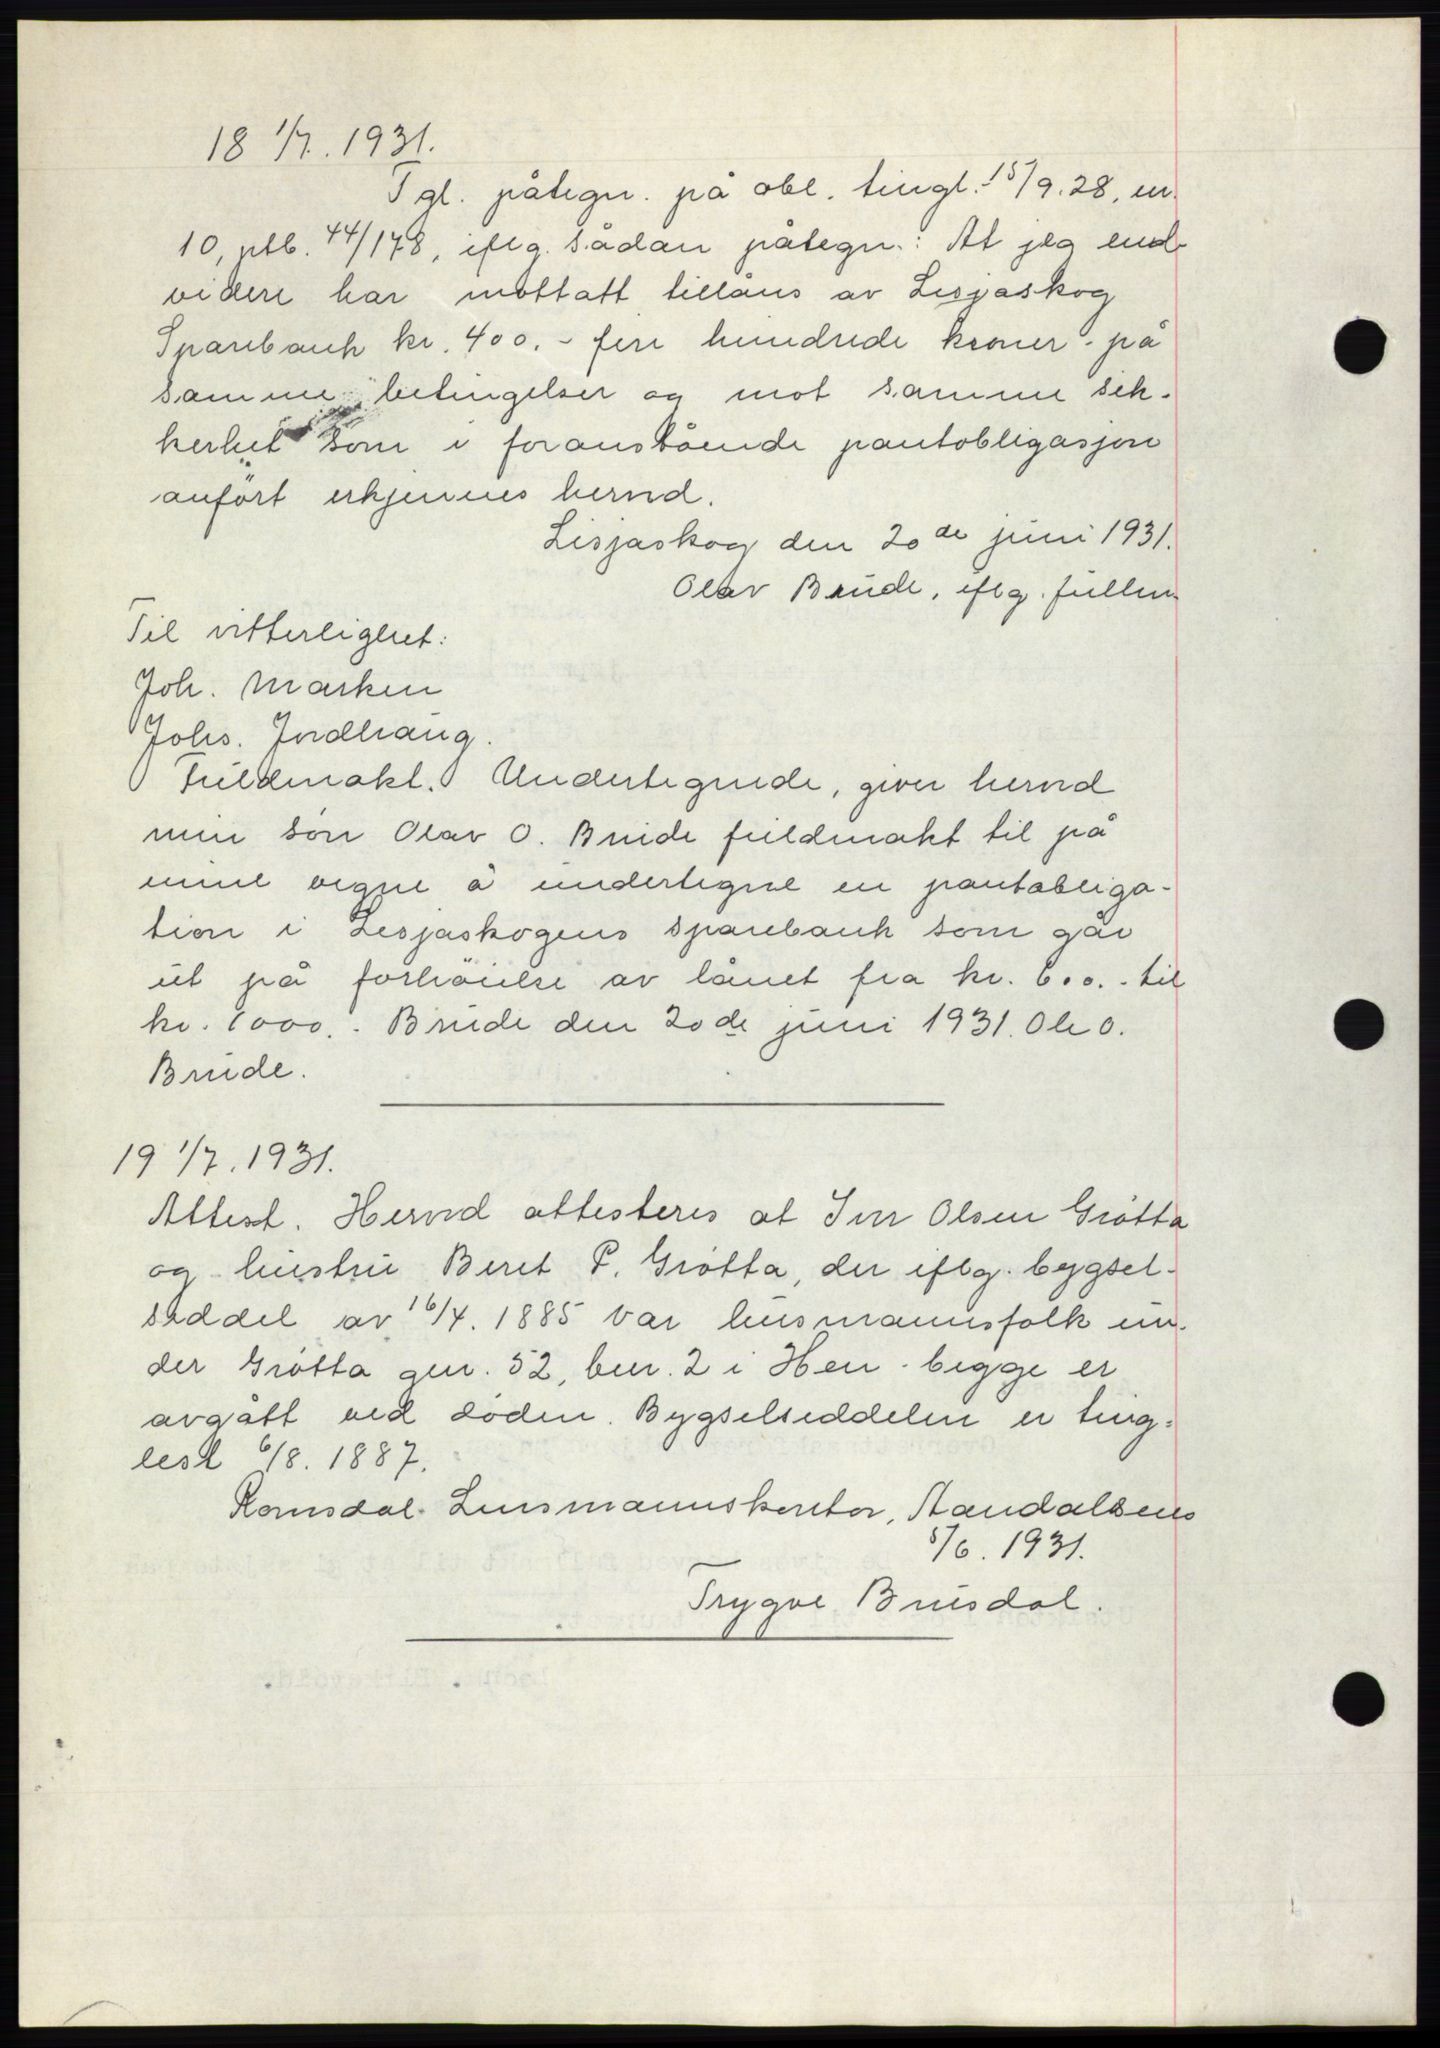 18 1/7. 1931.
Tgl. påtegn. på obl. tingl. 15/9.28, nr.
10, ptb. 44/178, iflg. sådan påtegn.: At jeg end-
videre har mottatt tillåns av Lesjaskog
Sparebank kr. 400.- fire hundrede kroner - på
samme betingelser og mot samme sik-
kerhet som i foranstående pantobligasjon
anført erkjennes herved.
Lesjaskog den 20de juni 1931.
Olav Brude, iflg. fullm.
Til vitterlighet:
Joh. Marken
Johs. Jordhaug.
Fuldmakt. Undertegnede, giver herved
min søn Olav O. Brude fuldmakt til på
mine vegne å undertegne en pantobliga-
tion i Lesjaskogens sparebank som går
ut på forhöielse av lånet fra kr. 600.- til
kr. 1000.- Brude den 20de juni 1931. Ole O.
Brude.
19 1/7. 1931.
Attest. Herved attesteres at Iver Olsen Grøtta
og hustru Beret P. Grøtta, der iflg. bygsel-
seddel av 16/4. 1885 var husmannsfolk un-
der Grøtta gnr. 52, bnr. 2 i Hen - begge er
avgått ved døden. Bygselseddelen er ting-
lest 6/8. 1887.
Romsdal Lensmannskontor, Aandalsnes
5/6. 1931.
Trygve Brusdal.